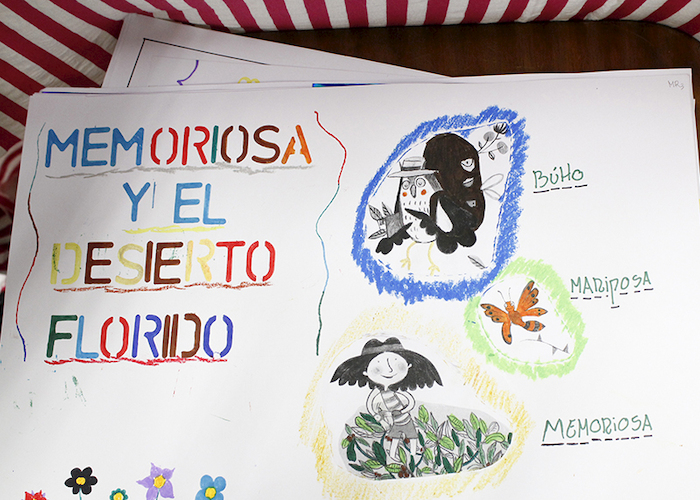 MEMORIOSA
Y EL
DESIERTO
FLORIDO
BÚHO
MARIPOSA
MEMORIOSA